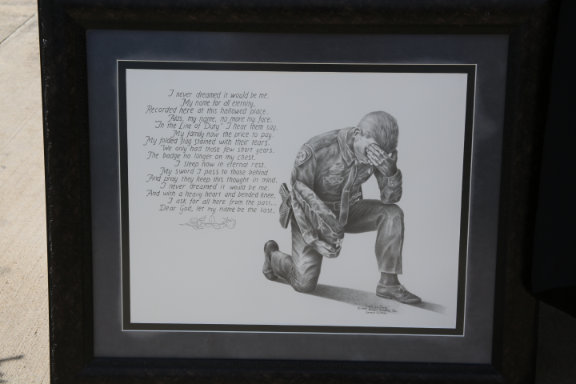 I never dreamed it would be me,
My name for all eternity,
Recorded here at this hallowed place,
Alas, my name, no more my face.
"In the Line of Duty" I hear them say,
My family now the price to pay.
My folded flag stained with their tears.
We only had those few short years.
The badge no longer on my chest,
I sleep now in eternal rest.
My sword I pass to those behind
And pray they keep this thought in mind.
I never dreamed it would be me,
And with a heavy heart and bended knee,
I ask for all here from the past...
Dear God, let my name be the last.